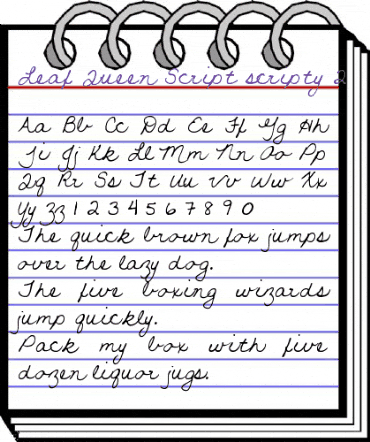 Leaf Queen Script scripty 2
Aa Bb Cc Dd Ee Ff Gg Hh
Ii Jj Kk Ll Mm Nn Oo Pp
Qq Rr Ss Tt Uu Vv Ww Xx
Yy Zz 1 2 3 4 5 6 7 8 9 0
The quick brown fox jumps
over the lazy dog.
The five boxing wizards
jump quickly.
Pack my box with five
dozen liquor jugs.